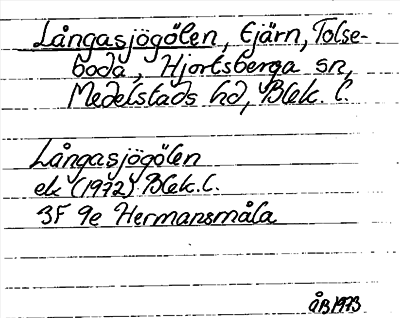 Långasjögölen, Ejärn, Tolse-
boda, Hjortsberga sn,
Medelstads hd, Blek. l.
Långasjögölen
ek (1972) Blek. l.
3F 9e Hermansmåla
ÅB 1973